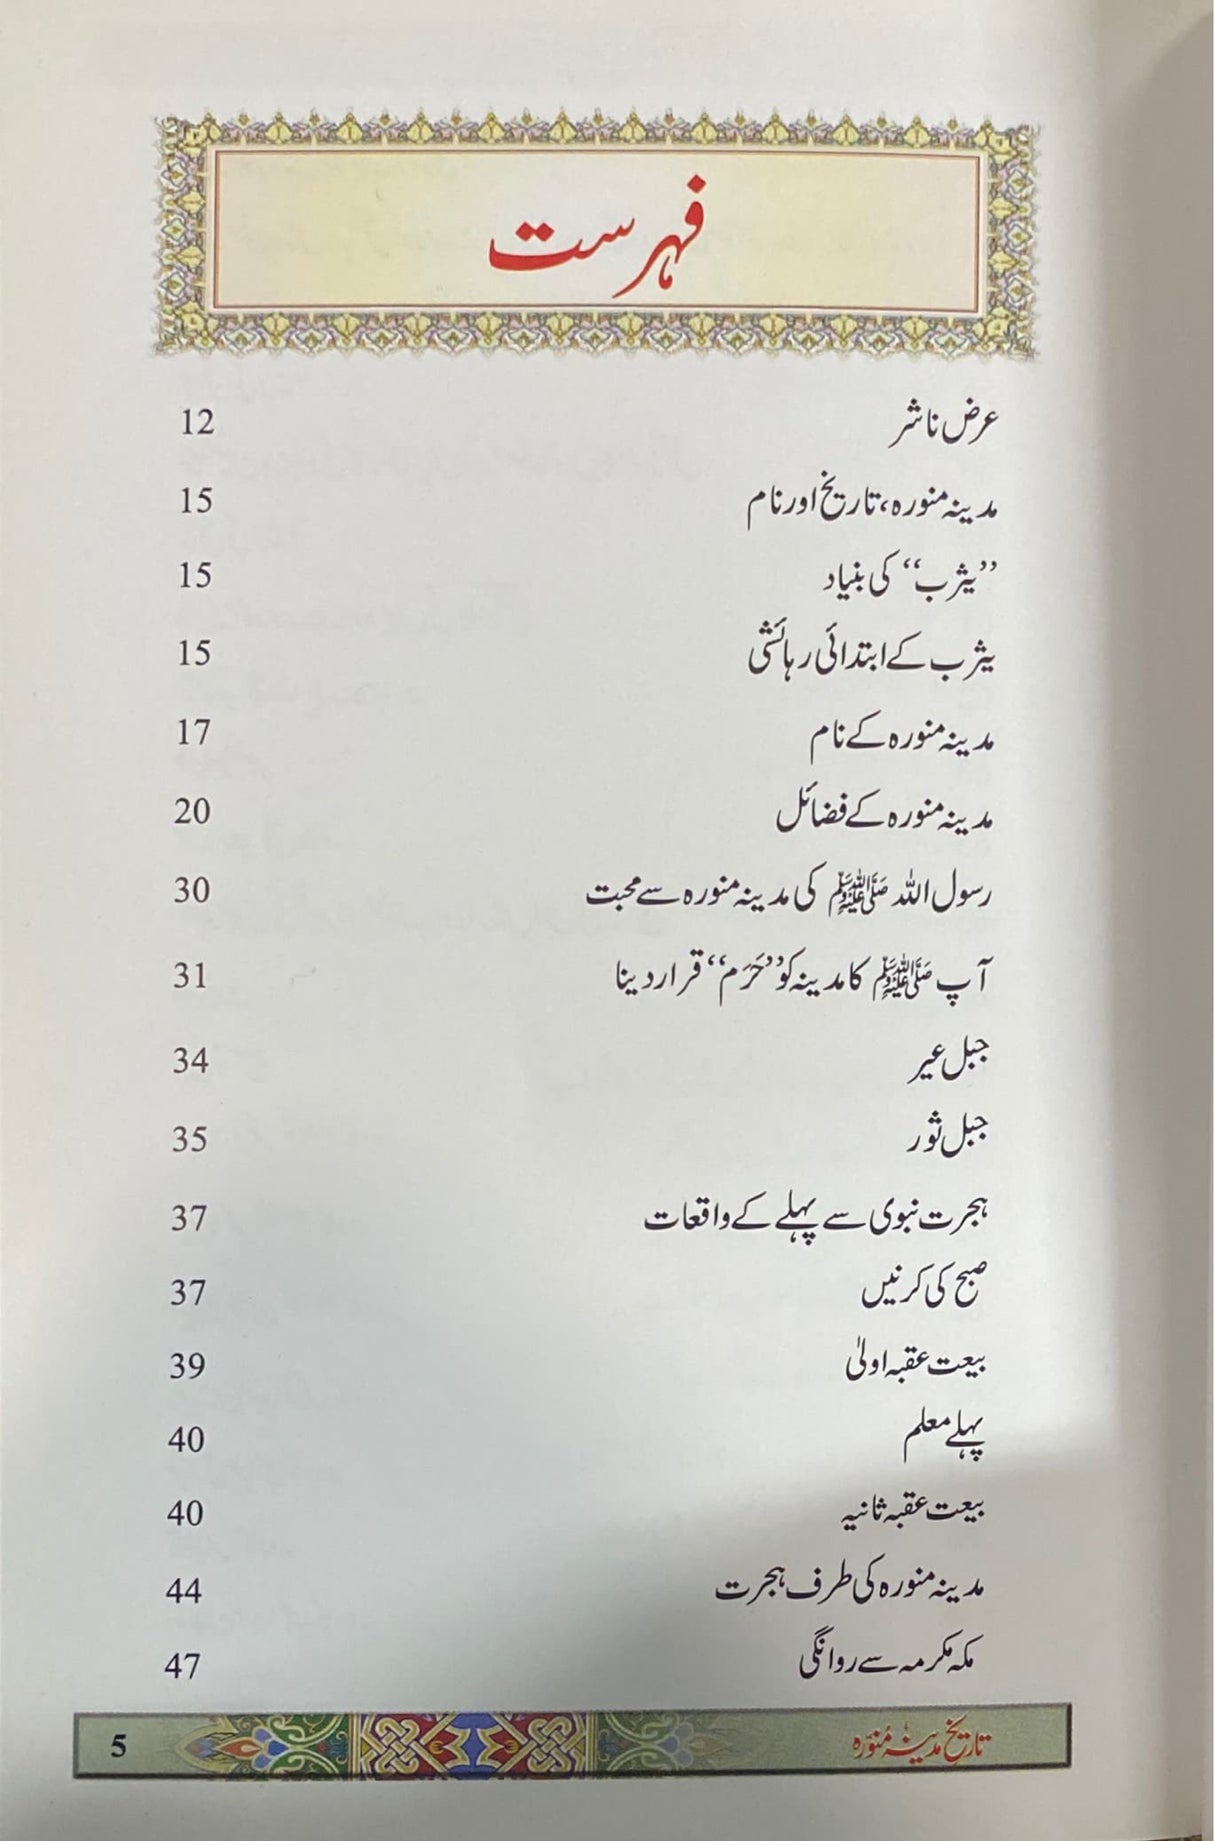 فہرست
عرض ناشر 12
مدینہ منورہ، تاریخ اور نام 15
”یثرب“ کی بنیاد 15
یثرب کے ابتدائی رہائشی 15
مدینہ منورہ کے نام 17
مدینہ منورہ کے فضائل 20
رسول اللہ ﷺ کی مدینہ منورہ سے محبت 30
آپ ﷺ کا مدینہ کو ”حَرَم“ قرار دینا 31
جبل عیر 34
جبل ثور 35
ہجرت نبوی سے پہلے کے واقعات 37
صبح کی کرنیں 37
بیعت عقبہ اولیٰ 39
پہلے معلم 40
بیعت عقبہ ثانیہ 40
مدینہ منورہ کی طرف ہجرت 44
مکہ مکرمہ سے روانگی 47
تاریخ مدینہ مُنورہ 5